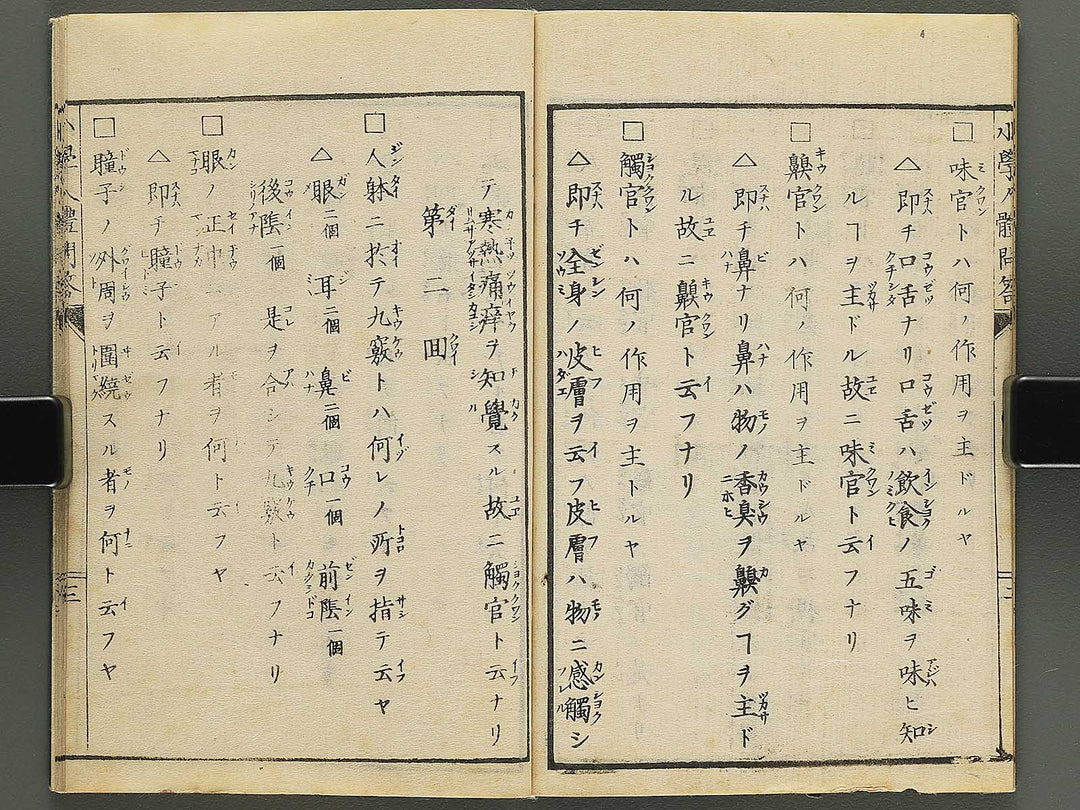 4
小學人體問答
□味官トハ何ノ作用ヲ主ドルヤ
△即チ口舌ナリ口舌ハ飲食ノ五味ヲ味ヒ知
ルヿヲ主ドル故ニ味官ト云フナリ
□齅官トハ何ノ作用ヲ主ドルヤ
△即チ鼻ナリ鼻ハ物ノ香臭ヲ齅グヿヲ主ド
ル故ニ齅官ト云フナリ
□觸官トハ何ノ作用ヲ主トルヤ
△即チ全身ノ皮膚ヲ云フ皮膚ハ物ニ感觸シ
テ寒熱痛癢ヲ知覺スル故ニ觸官ト云ナリ
第二囬
□人躰ニ於テ九竅トハ何レノ所ヲ指テ云ヤ
△眼二個 耳二個 鼻二個 口一個 前陰一個
後陰一個 是ヲ合シテ九竅ト云フナリ
□眼ノ正中ニアル者ヲ何ト云フヤ
△即チ瞳子ト云フナリ
□瞳子ノ外周ヲ圍繞スル者ヲ何ト云フヤ
小學人體問答
三